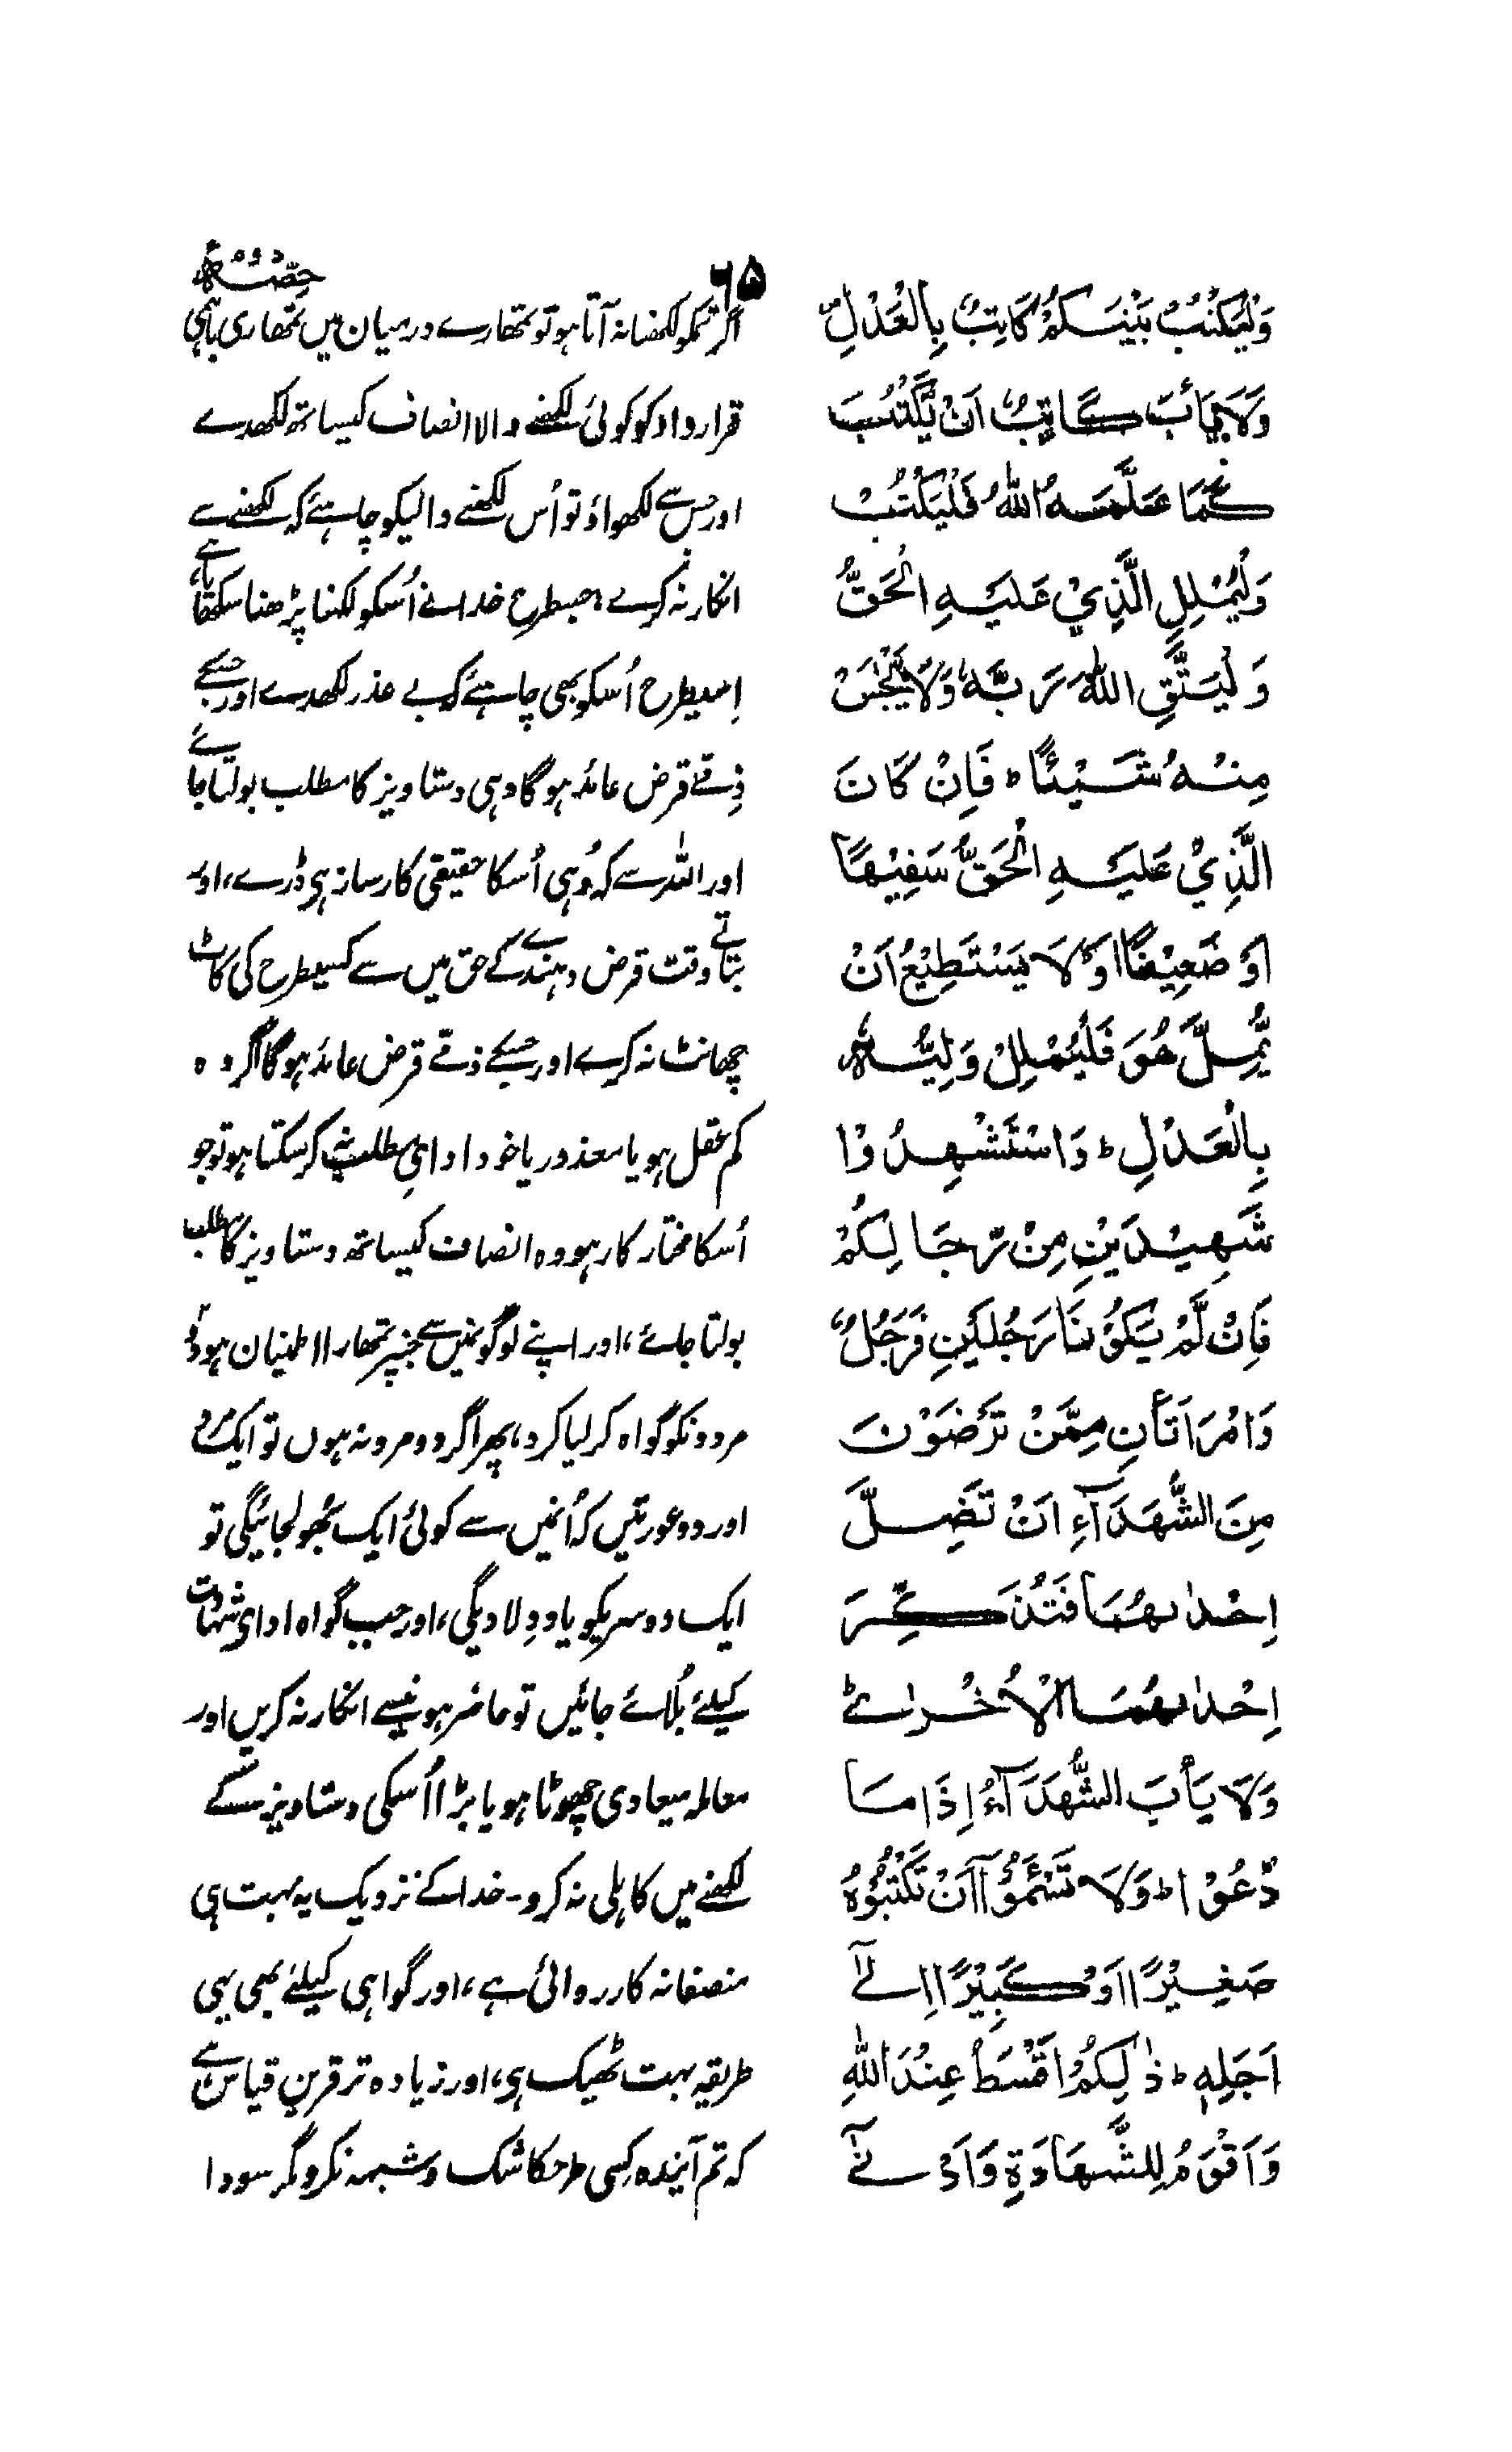 ۶۵
حصّہ دوم
وَلْيَكْتُبْ بَّيْنَكُمْ كَاتِبٌ بِالْعَدْلِ
وَلَا يَأْبَ كَاتِبٌ اَنْ يَّكْتُبَ
كَمَا عَلَّمَهُ اللّٰهُ فَلْيَكْتُبْ
وَلْيُمْلِلِ الَّذِيْ عَلَيْهِ الْحَقُّ
وَلْيَتَّقِ اللّٰهَ رَبَّهٗ وَلَا يَبْخَسْ
مِنْهُ شَيْئًا ط فَاِنْ كَانَ
الَّذِيْ عَلَيْهِ الْحَقُّ سَفِيْهًا
اَوْ ضَعِيْفًا اَوْ لَا يَسْتَطِيْعُ اَنْ
يُّمِلَّ هُوَ فَلْيُمْلِلْ وَلِيُّهٗ
بِالْعَدْلِ ط وَاسْتَشْهِدُوْا
شَهِيْدَيْنِ مِنْ رِّجَالِكُمْ
فَاِنْ لَّمْ يَكُوْنَا رَجُلَيْنِ فَرَجُلٌ
وَّامْرَاَتَانِ مِمَّنْ تَرْضَوْنَ
مِنَ الشُّهَدَآءِ اَنْ تَضِلَّ
اِحْدٰىهُمَا فَتُذَكِّرَ
اِحْدٰىهُمَا الْاُخْرٰى ط
وَلَا يَأْبَ الشُّهَدَآءُ اِذَا مَا
دُعُوْا ط وَلَا تَسْئَمُوْٓا اَنْ تَكْتُبُوْهُ
صَغِيْرًا اَوْ كَبِيْرًا اِلٰٓى
اَجَلِهٖ ط ذٰلِكُمْ اَقْسَطُ عِنْدَ اللّٰهِ
وَاَقْوَمُ لِلشَّهَادَةِ وَاَدْنٰٓى
اگر تمکو لکھنا نہ آتا ہو تو تمھارے درمیان میں تمھاری باہمی
قرارداد کو کوئی لکھنے والا انصاف کیساتھ لکھدے
اور جس سے لکھواؤ تو اُس لکھنے والیکو چاہئے کہ لکھنے سے
انکار نہ کرے، جسطرح خدا نے اُسکو لکنا پڑھنا سکھایا ہے
اِسیطرح اُسکو بھی چاہئے کہ بے عذر لکھدے اور جسکے
ذِمّے قرض عائد ہوگا وہی دستاویز کا مطلب بولتا جائے
اور اللہ سے کہ وُہی اُسکا حقیقی کارساز ہی ڈرے، اور
بتاتے وقت قرض دہندے کے حق میں سے کسیطرح کی کاٹ
چھانٹ نہ کرے اور جسکے ذمّے قرض عائد ہوگا اگر وہ
کم عقل ہو یا معذور یا خود اداےِ مطلب نہ کر سکتا ہو تو جو
اُسکا مختار کار ہو وہ انصاف کیساتھ دستاویز کا مطلب
بولتا جائے، اور اپنے لوگونمیں سے جنپر تمھارا اطمنیان ہو دو
مردونکو گواہ کر لیا کرو، پھر اگر دو مرد نہ ہوں تو ایک مرد
اور دو عورتیں کہ اُنمیں سے کوئی ایک بُھولجائیگی تو
ایک دوسریکو یاد دِلا دیگی، اور جب گواہ ادای شہادت
کیلئے بُلائے جائیں تو حاضر ہونیسے انکار نہ کریں اور
معاملہ میعادی چھوٹا ہو یا بڑا اُسکی دستاویز کے
لکھنے میں کاہلی نہ کرو - خدا کے نزدیک یہ بہت ہی
منصفانہ کارروائی ہے، اور گواہی کیلئے بھی یہی
طریقہ بہت ٹھیک ہی، اور زیادہ تر قرین قیاس ہے
کہ تم آیندہ کِسی طرحکا شک و شبہہ نکرو مگر سودا